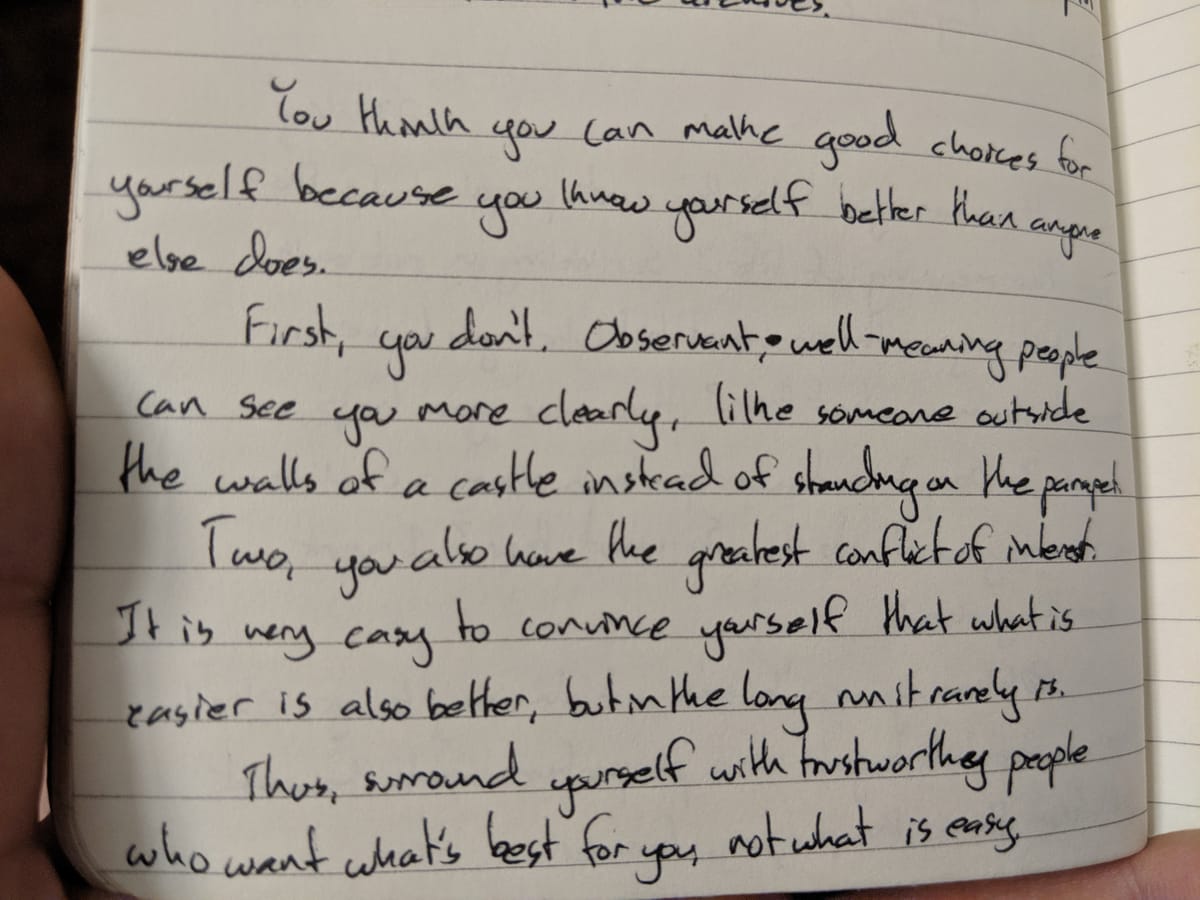 archives.
You think you can make good choices for
yourself because you know yourself better than anyone
else does.
First, you don't. Observant, well-meaning people
can see you more clearly, like someone outside
the walls of a castle instead of standing on the parapet.
Two, you also have the greatest conflict of interest.
It is very easy to convince yourself that what is
easier is also better, but in the long run it rarely is.
Thus, surround yourself with trustworthy people
who want what's best for you, not what is easy.